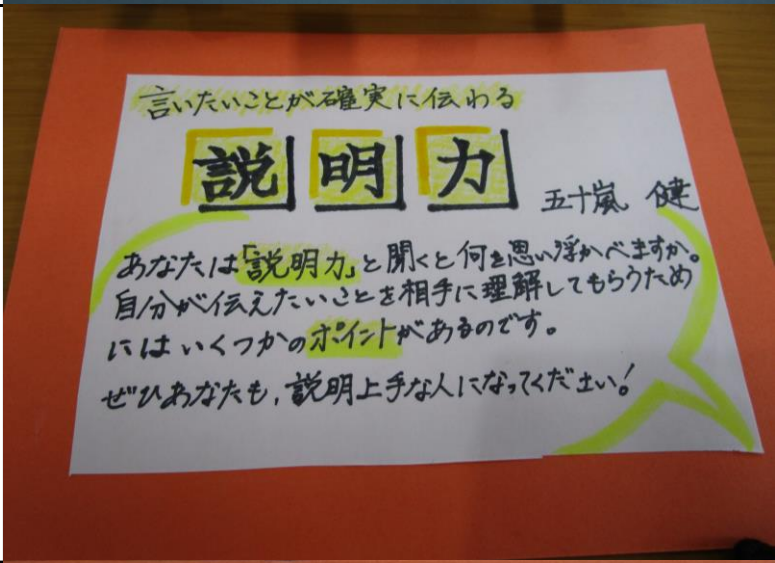 言いたいことが確実に伝わる
説明力 五十嵐 健
あなたは「説明力」と聞くと何を思い浮かべますか。
自分が伝えたいことを相手に理解してもらうため
にはいくつかのポイントがあるのです。
ぜひあなたも、説明上手な人になってください!